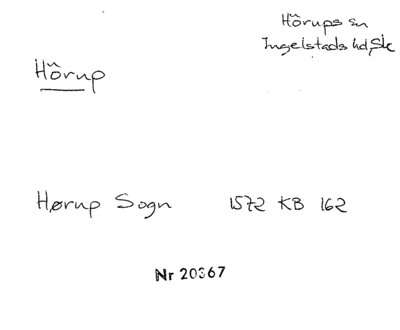 Hörups sn
Ingelstads hd, Sk
Hörup
Hørup Sogn 1572 KB 162
Nr 20367